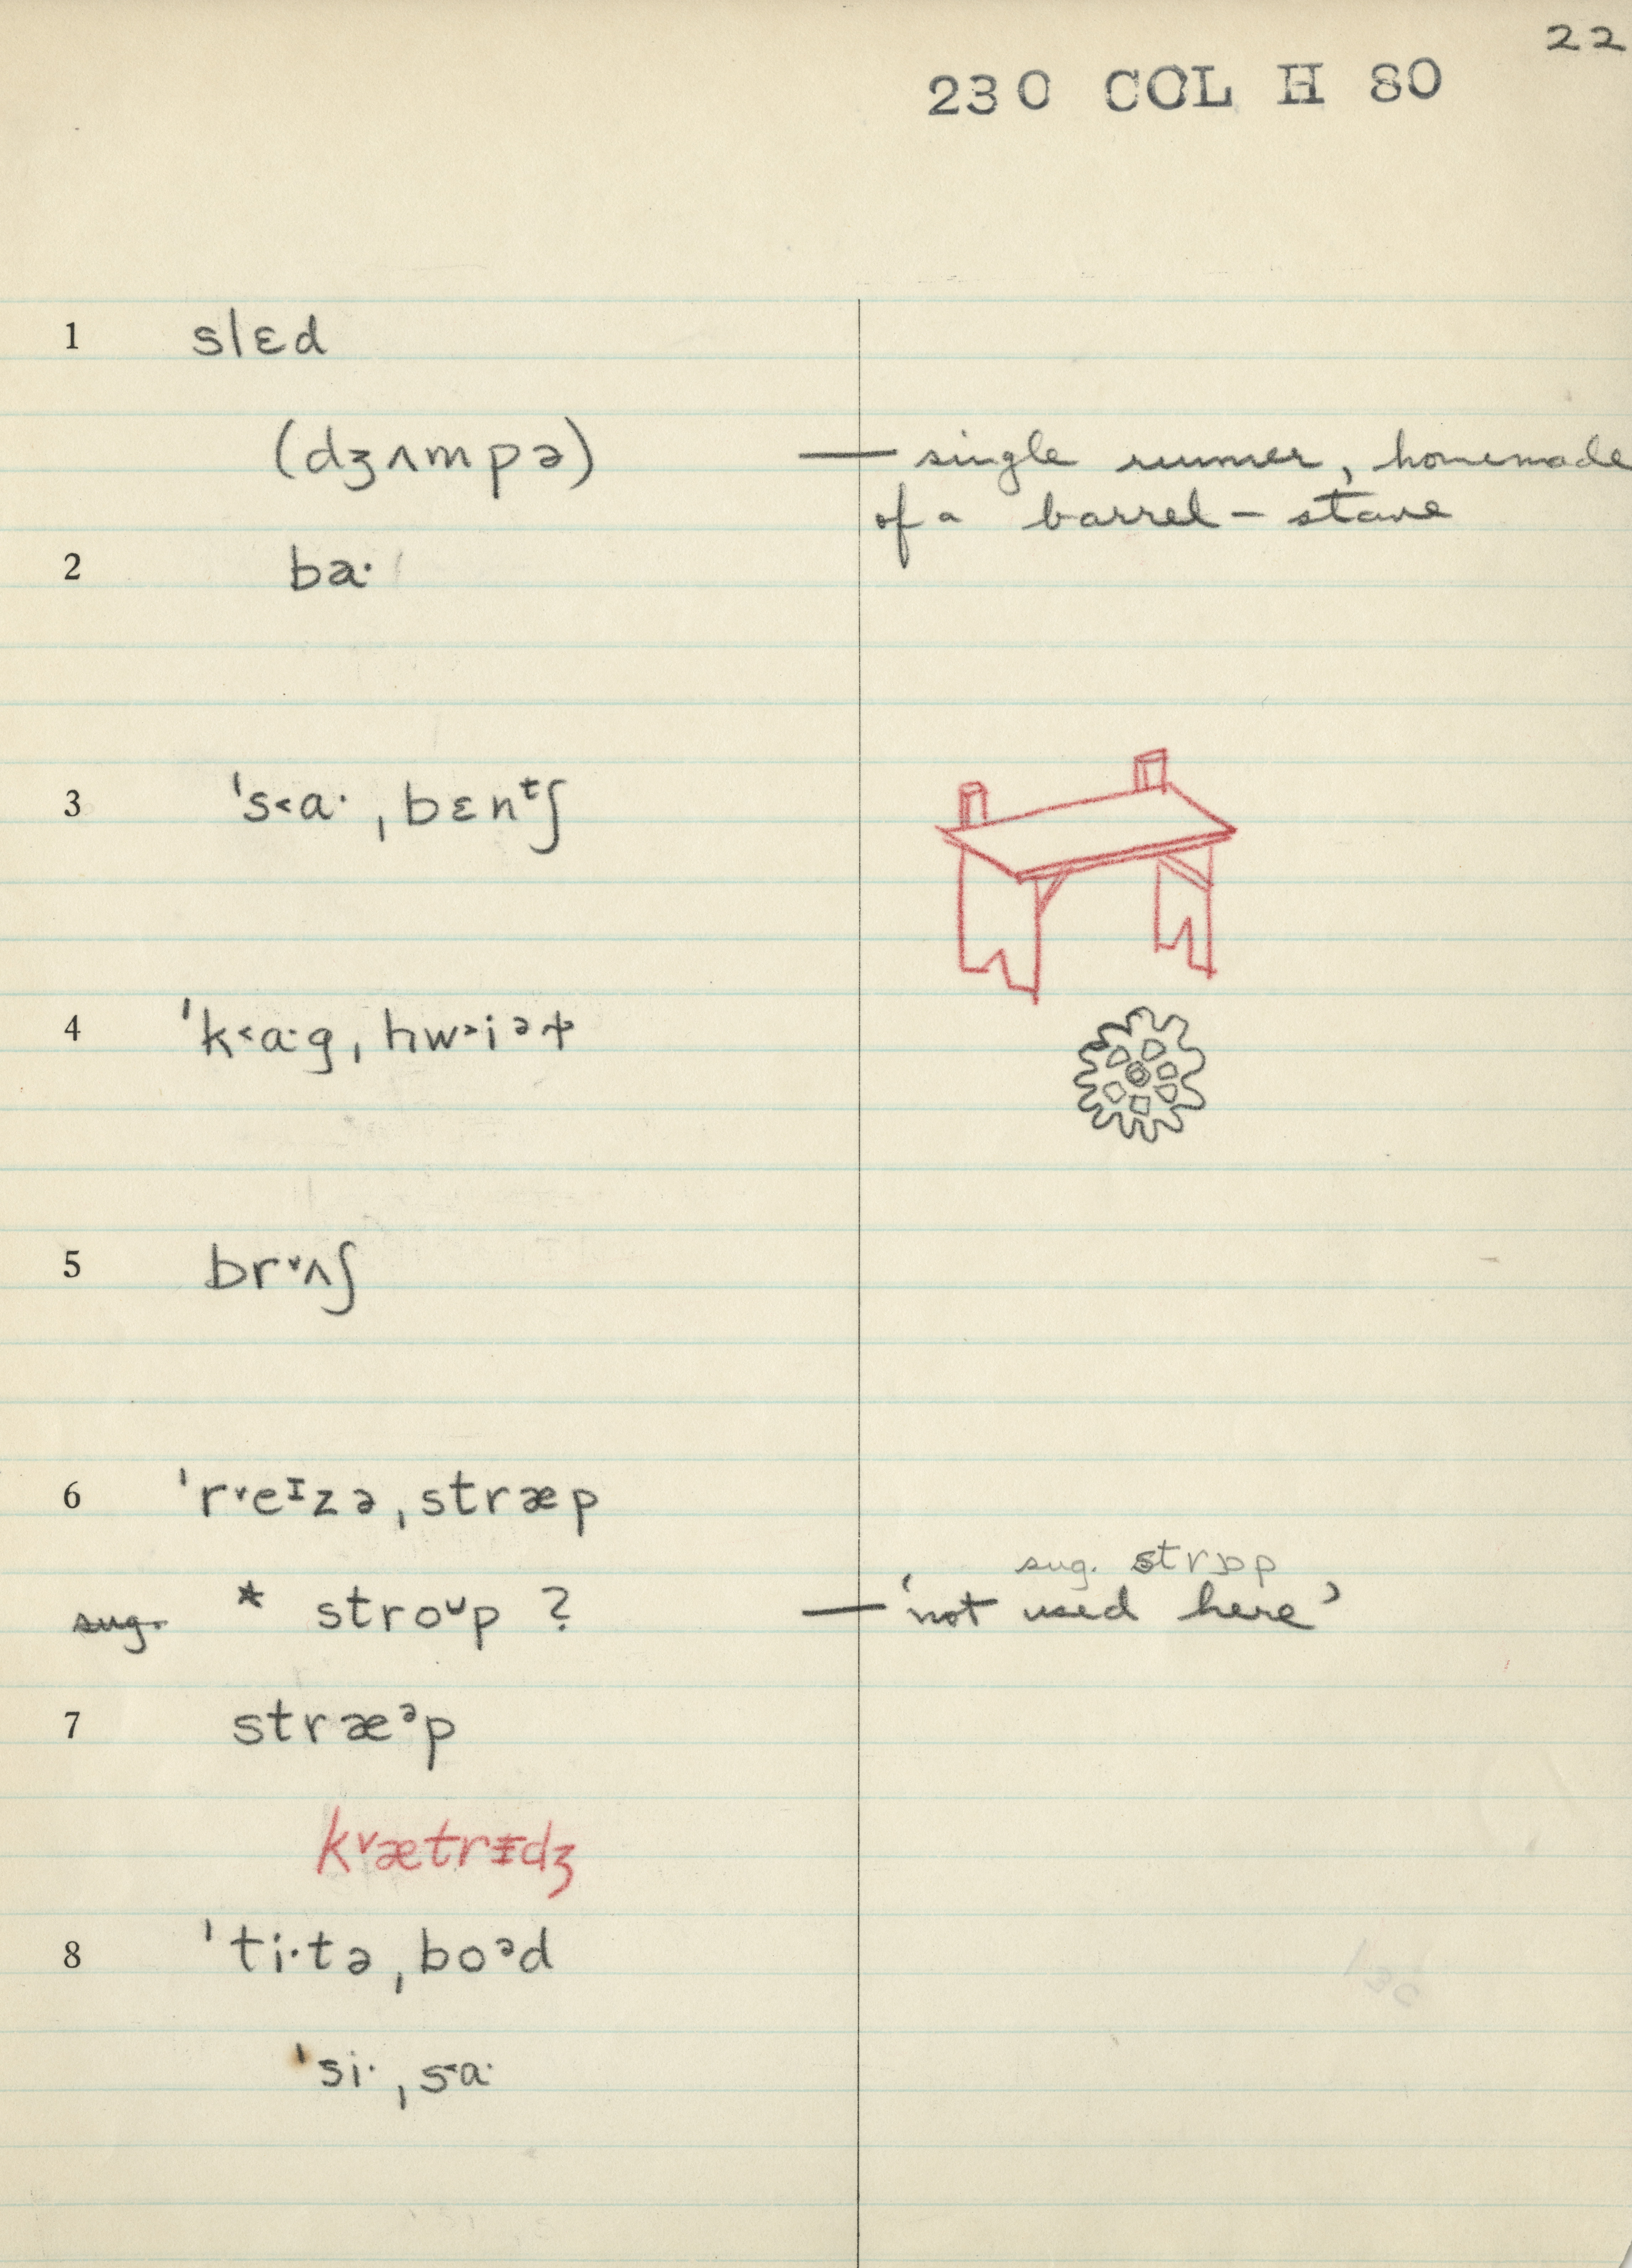 22
230 COL H 80
1 slɛd
(dʒʌmpə) — single runner, homemade
of a barrel-stave
2 baˑ
3 ˈs˂aˑˌbɛnᵗʃ
4 ˈk˂aˑgˌhw˃iᵊɫ
5 br˅ʌʃ
6 ˈr˅eᶦzəˌstræp
sug. strɒp
sug. * stroᵘp ? — ‘not used here’
7 stræᵊp
k˅ætrɪdʒ
8 ˈtiˑtəˌboᵊd
ˈsiˑˌs˂aˑ